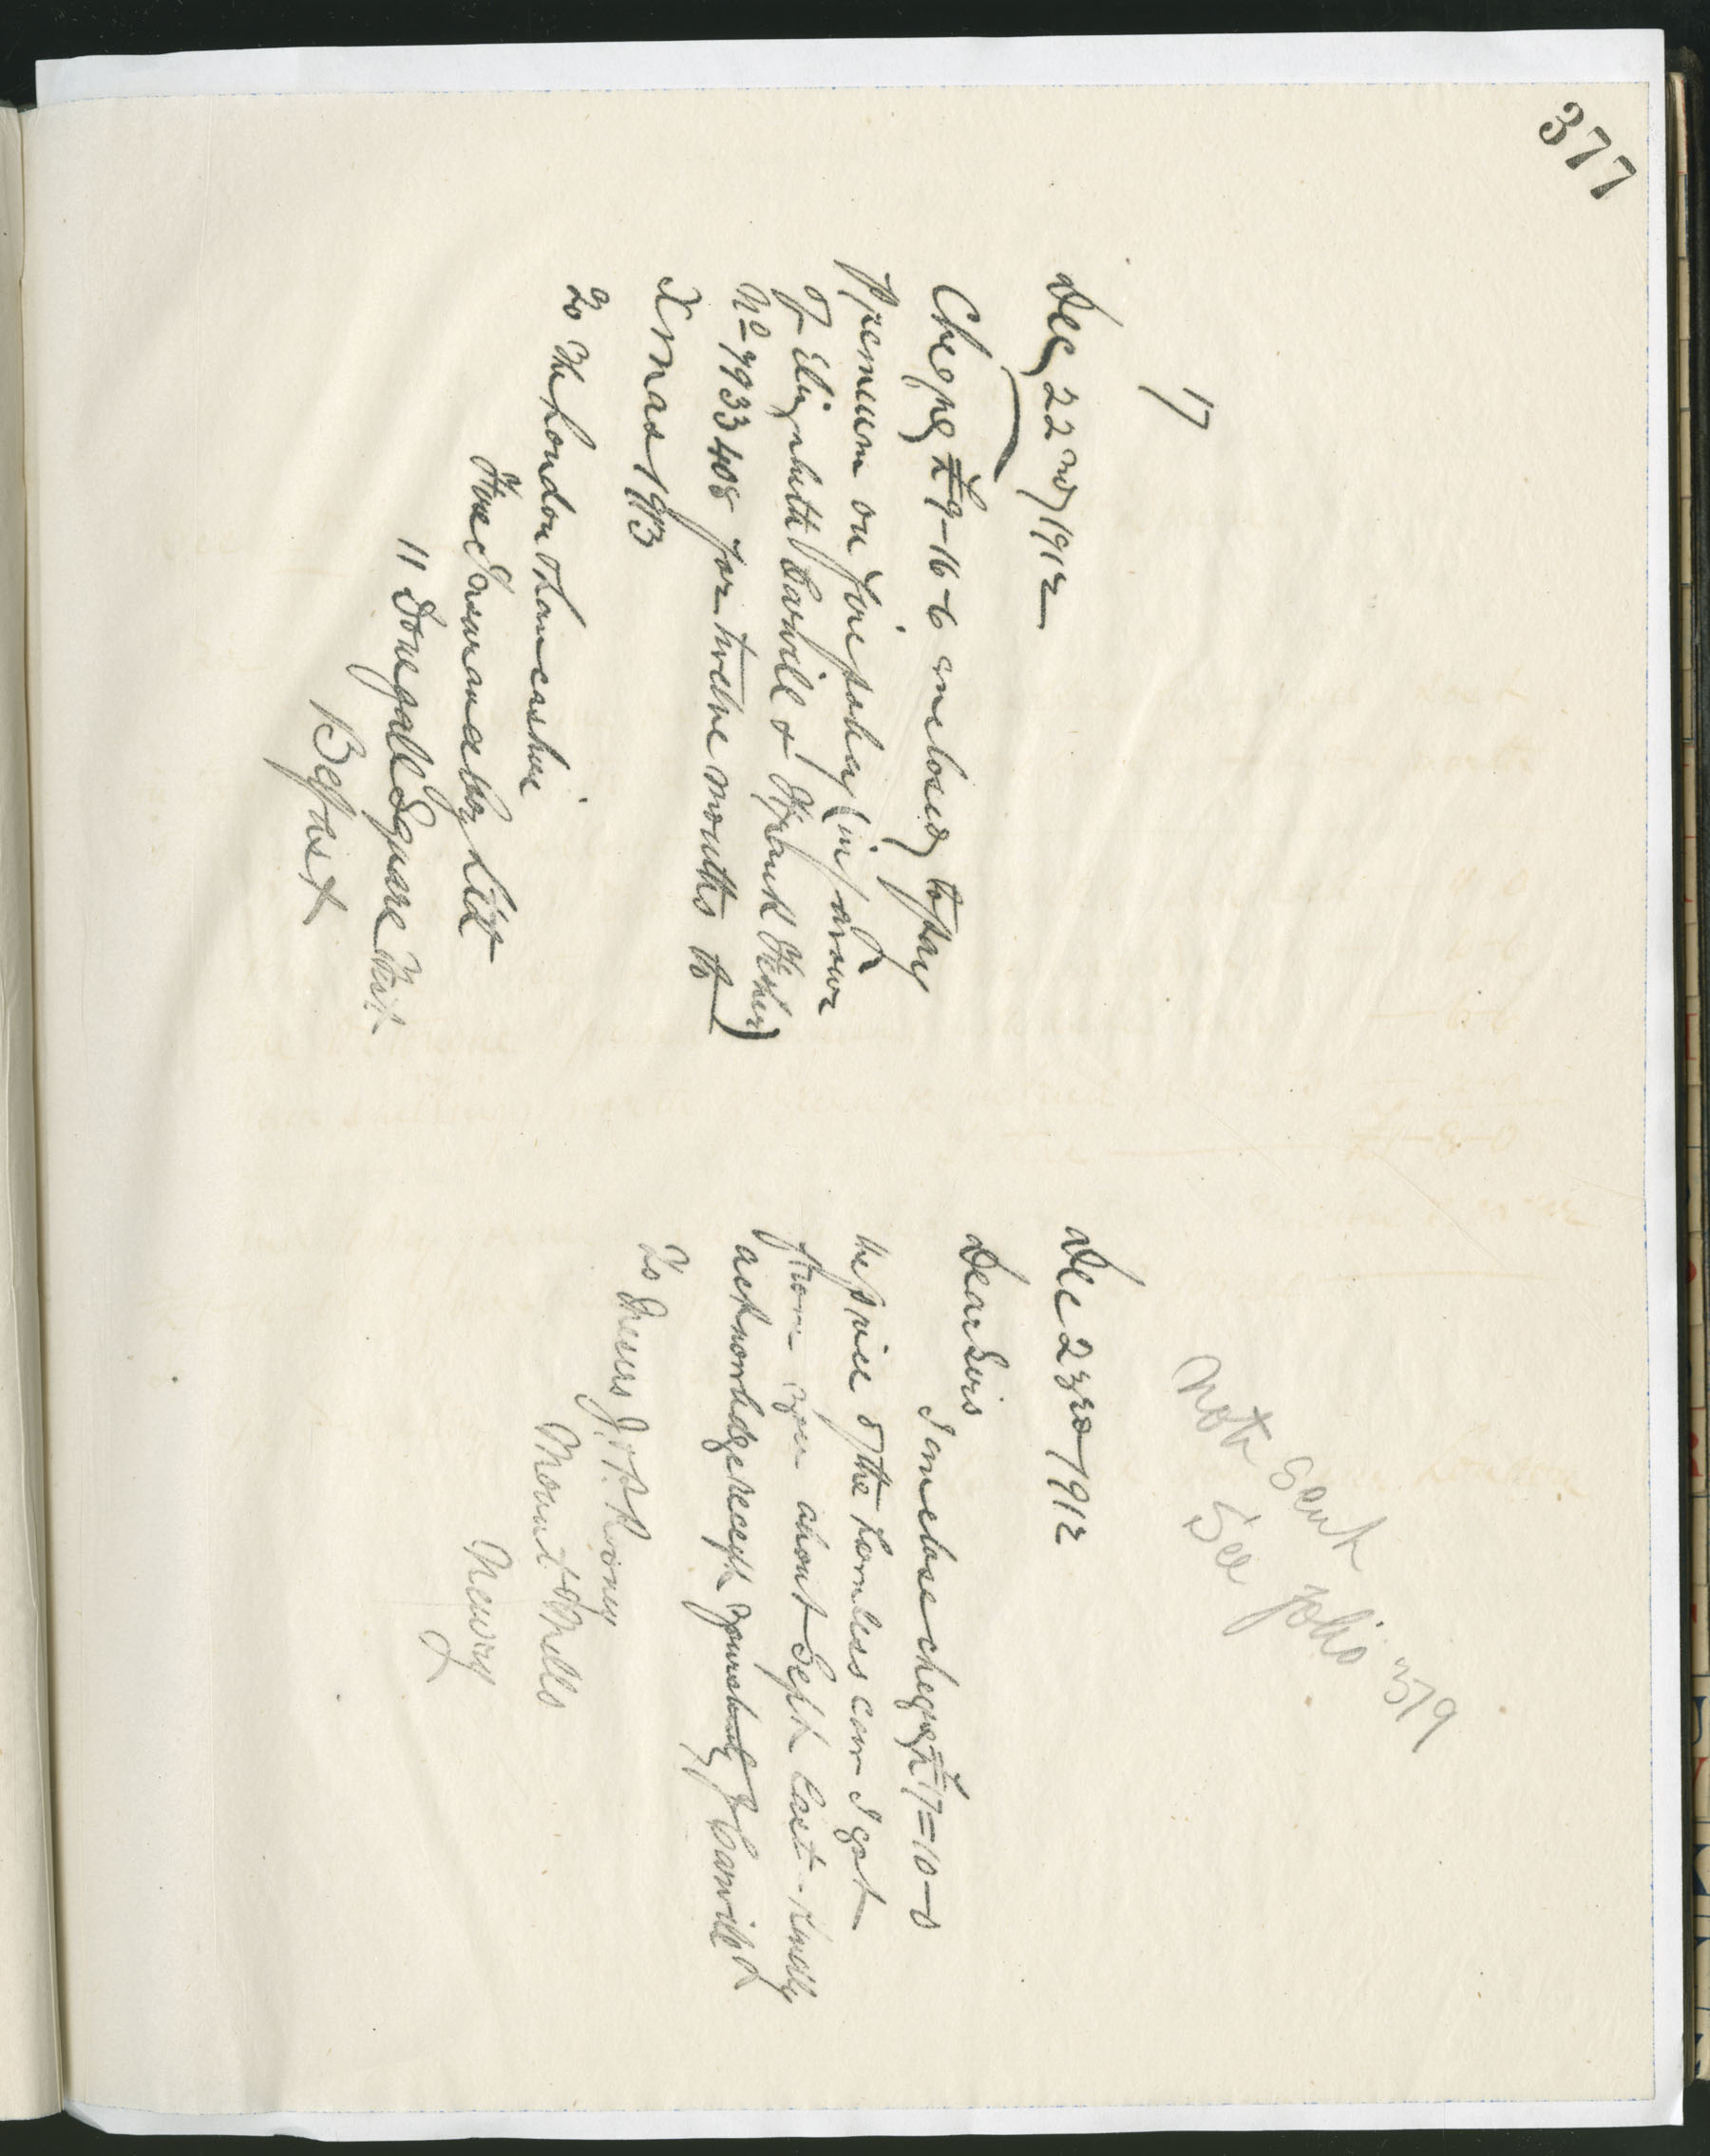 377
17
Dec 22nd 1912
Cheque £9-16-6 enclosed to pay
Premium on Fire policy (in favour
of Elizabeth Carvill & Frank Fisher)
No 7933408 for twelve months to
Xmas 1913
To The London & Lancashire
Fire Insurance Coy Ltd
11 Donegall Square West
Belfast
not sent
See folio 379
Dec 23rd 1912
Dear Sirs
I enclose cheque £17=10-0
the price of the hornless cow I got
from you about Sept last - Kindly
acknowledge receipt Yours truly J Carvill
To Messrs J. & P. Rooney
Mount Mills
Newry